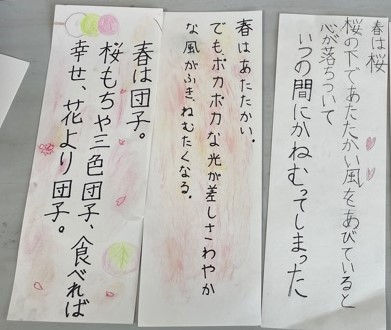 春は桜
桜の下であたたかい風をあびていると
心が落ちついて
いつの間にかねむってしまった
春はあたたかい。
でも、ポカポカな光が差しさわやか
な風がふき、ねむたくなる。
春は団子。
桜もちや三色団子、食べれば
幸せ、花より団子。